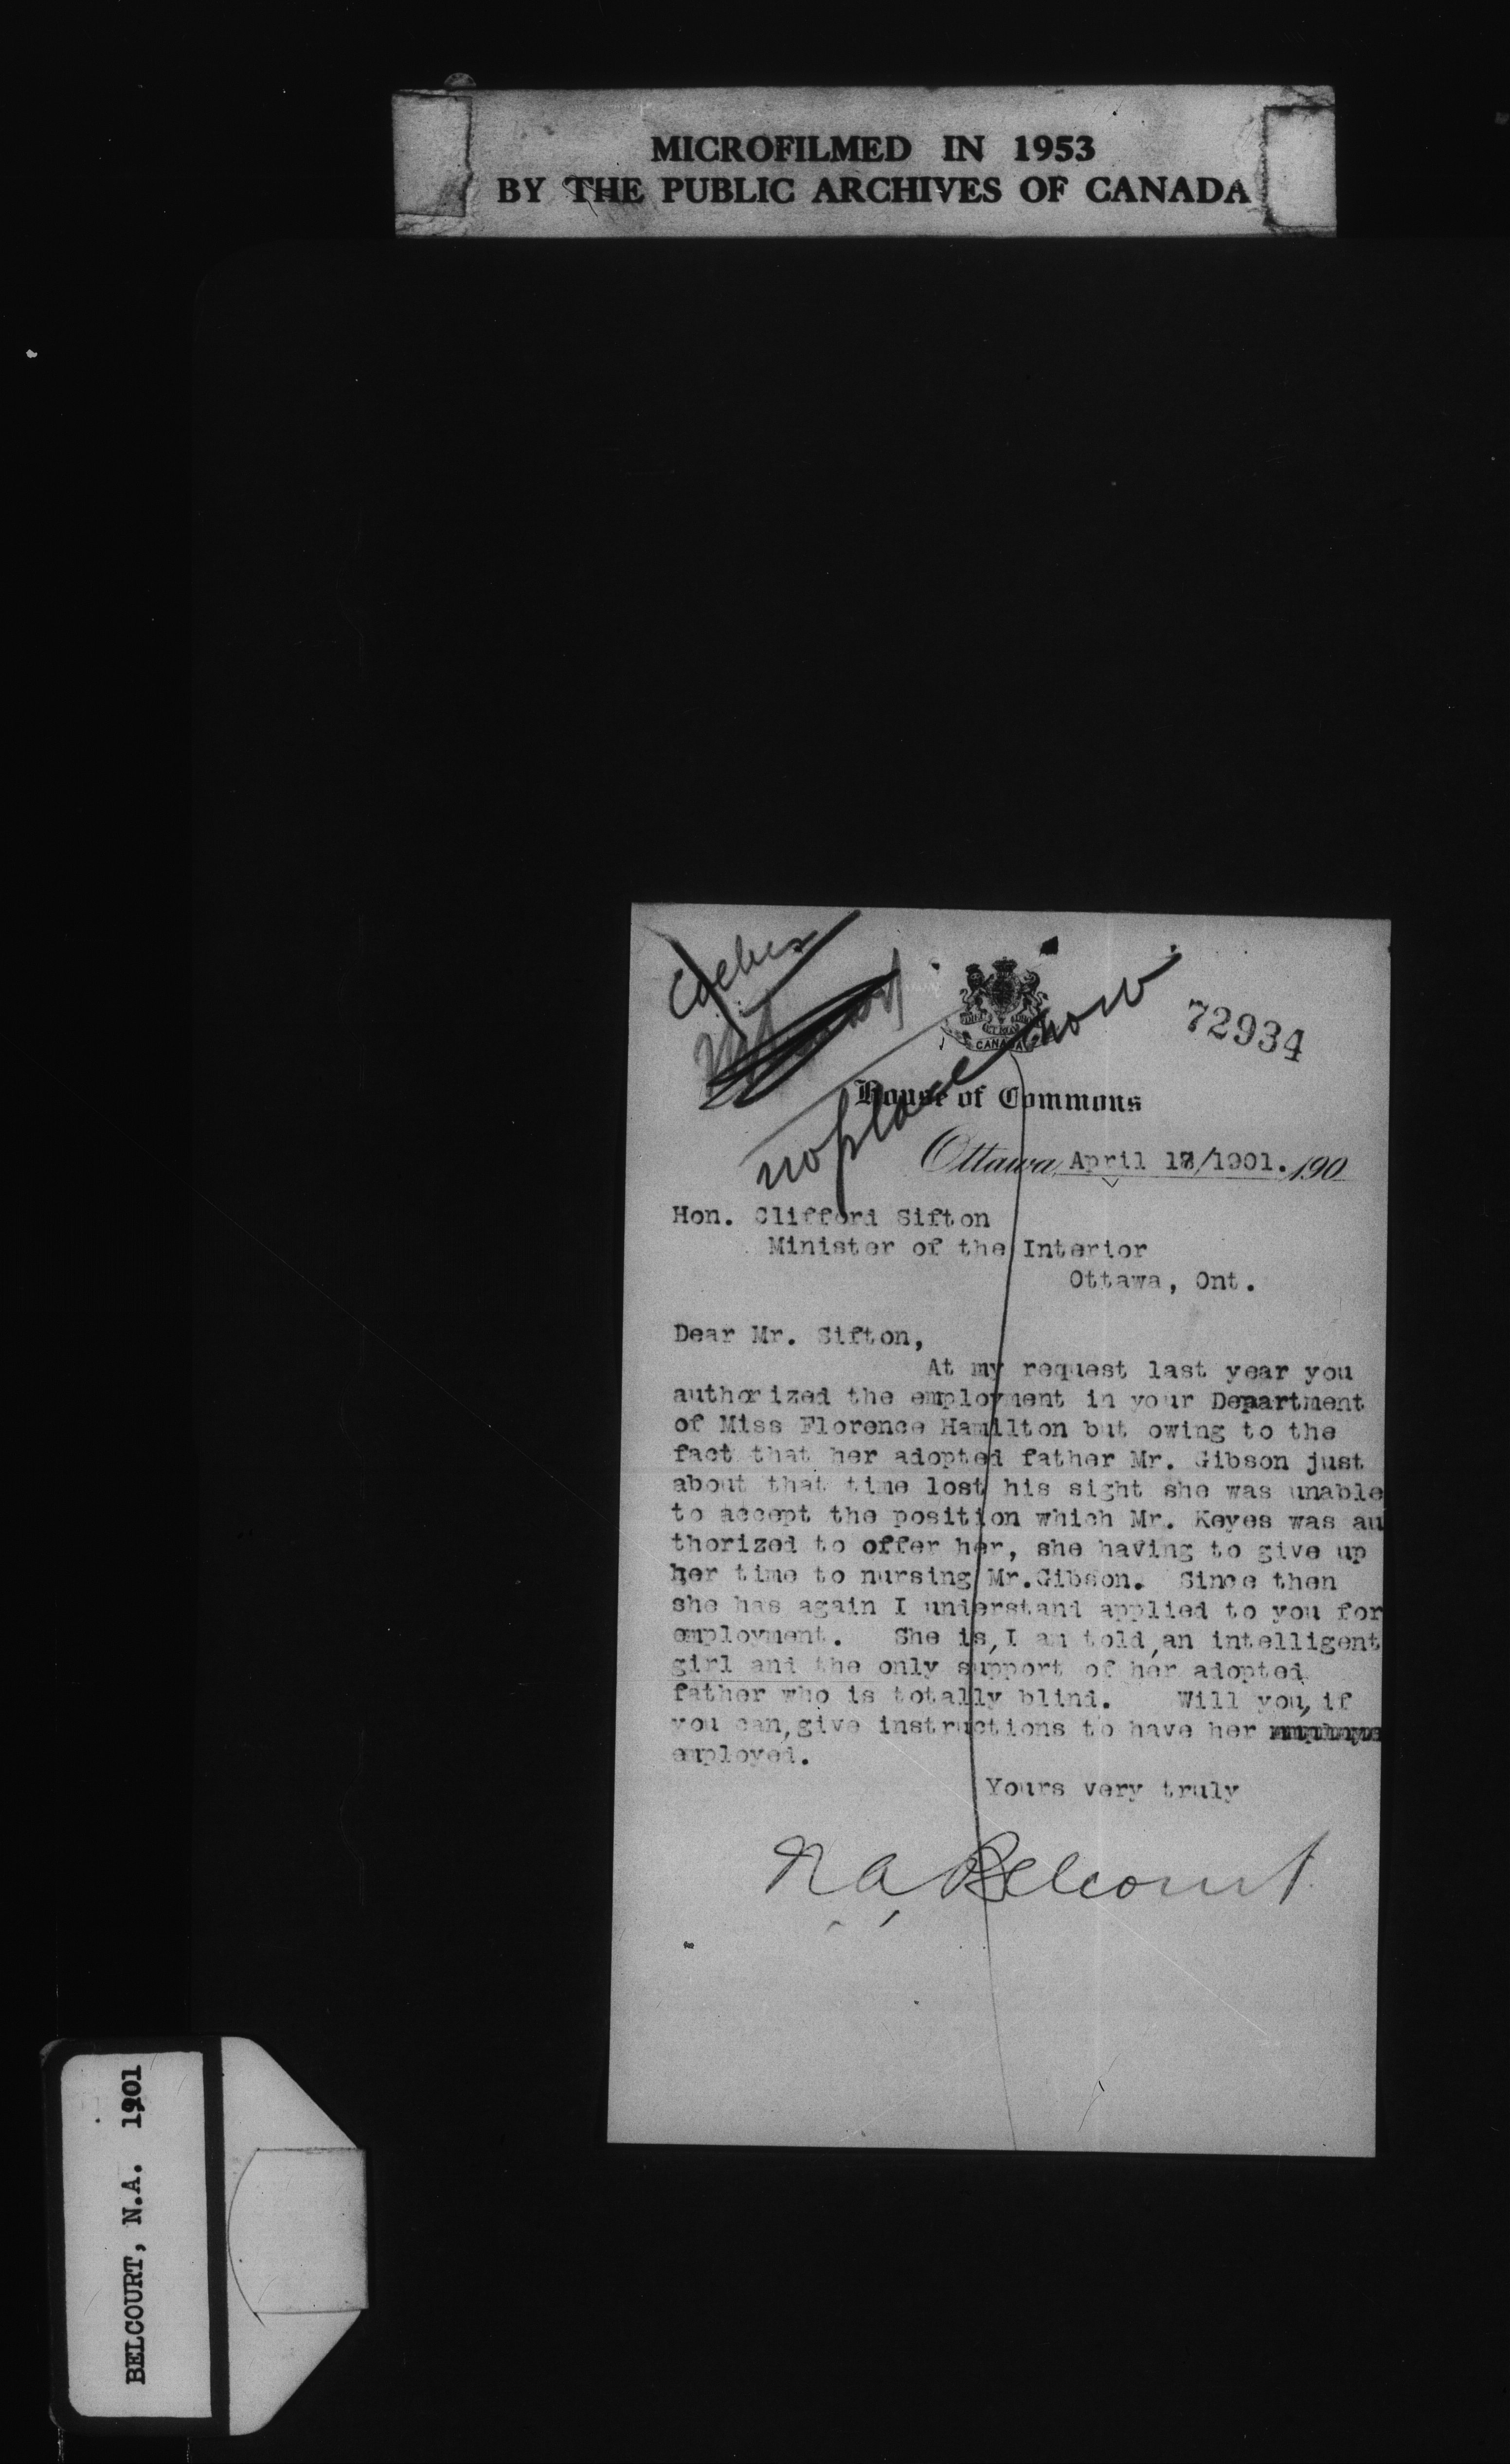 MICROFILMED IN 1953
BY THE PUBLIC ARCHIVES OF CANADA
no place now
CANADA
72934
House of Commons
Ottawa, April 18/1901. 190
Hon. Clifford Sifton
Minister of the Interior
Ottawa, Ont.
Dear Mr. Sifton,
At my request last year you
authorized the employment in your Department
of Miss Florence Hamilton but owing to the
fact that her adopted father Mr. Gibson just
about that time lost his sight she was unable
to accept the position which Mr. Keyes was au
thorized to offer her, she having to give up
her time to nursing Mr.Gibson. Since then
she has again I understand applied to you for
employment. She is, I am told, an intelligent
girl and the only support of her adopted
father who is totally blind. Will you, if
you can, give instructions to have her
employed.
Yours very truly
N A Belcourt
BELCOURT, N.A. 1901